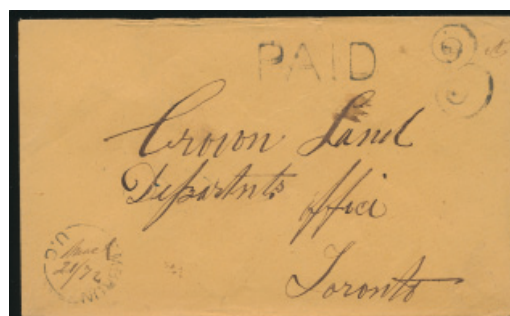 PAID 3
Crown Land
Departnts
Office
Toronto
U.C.